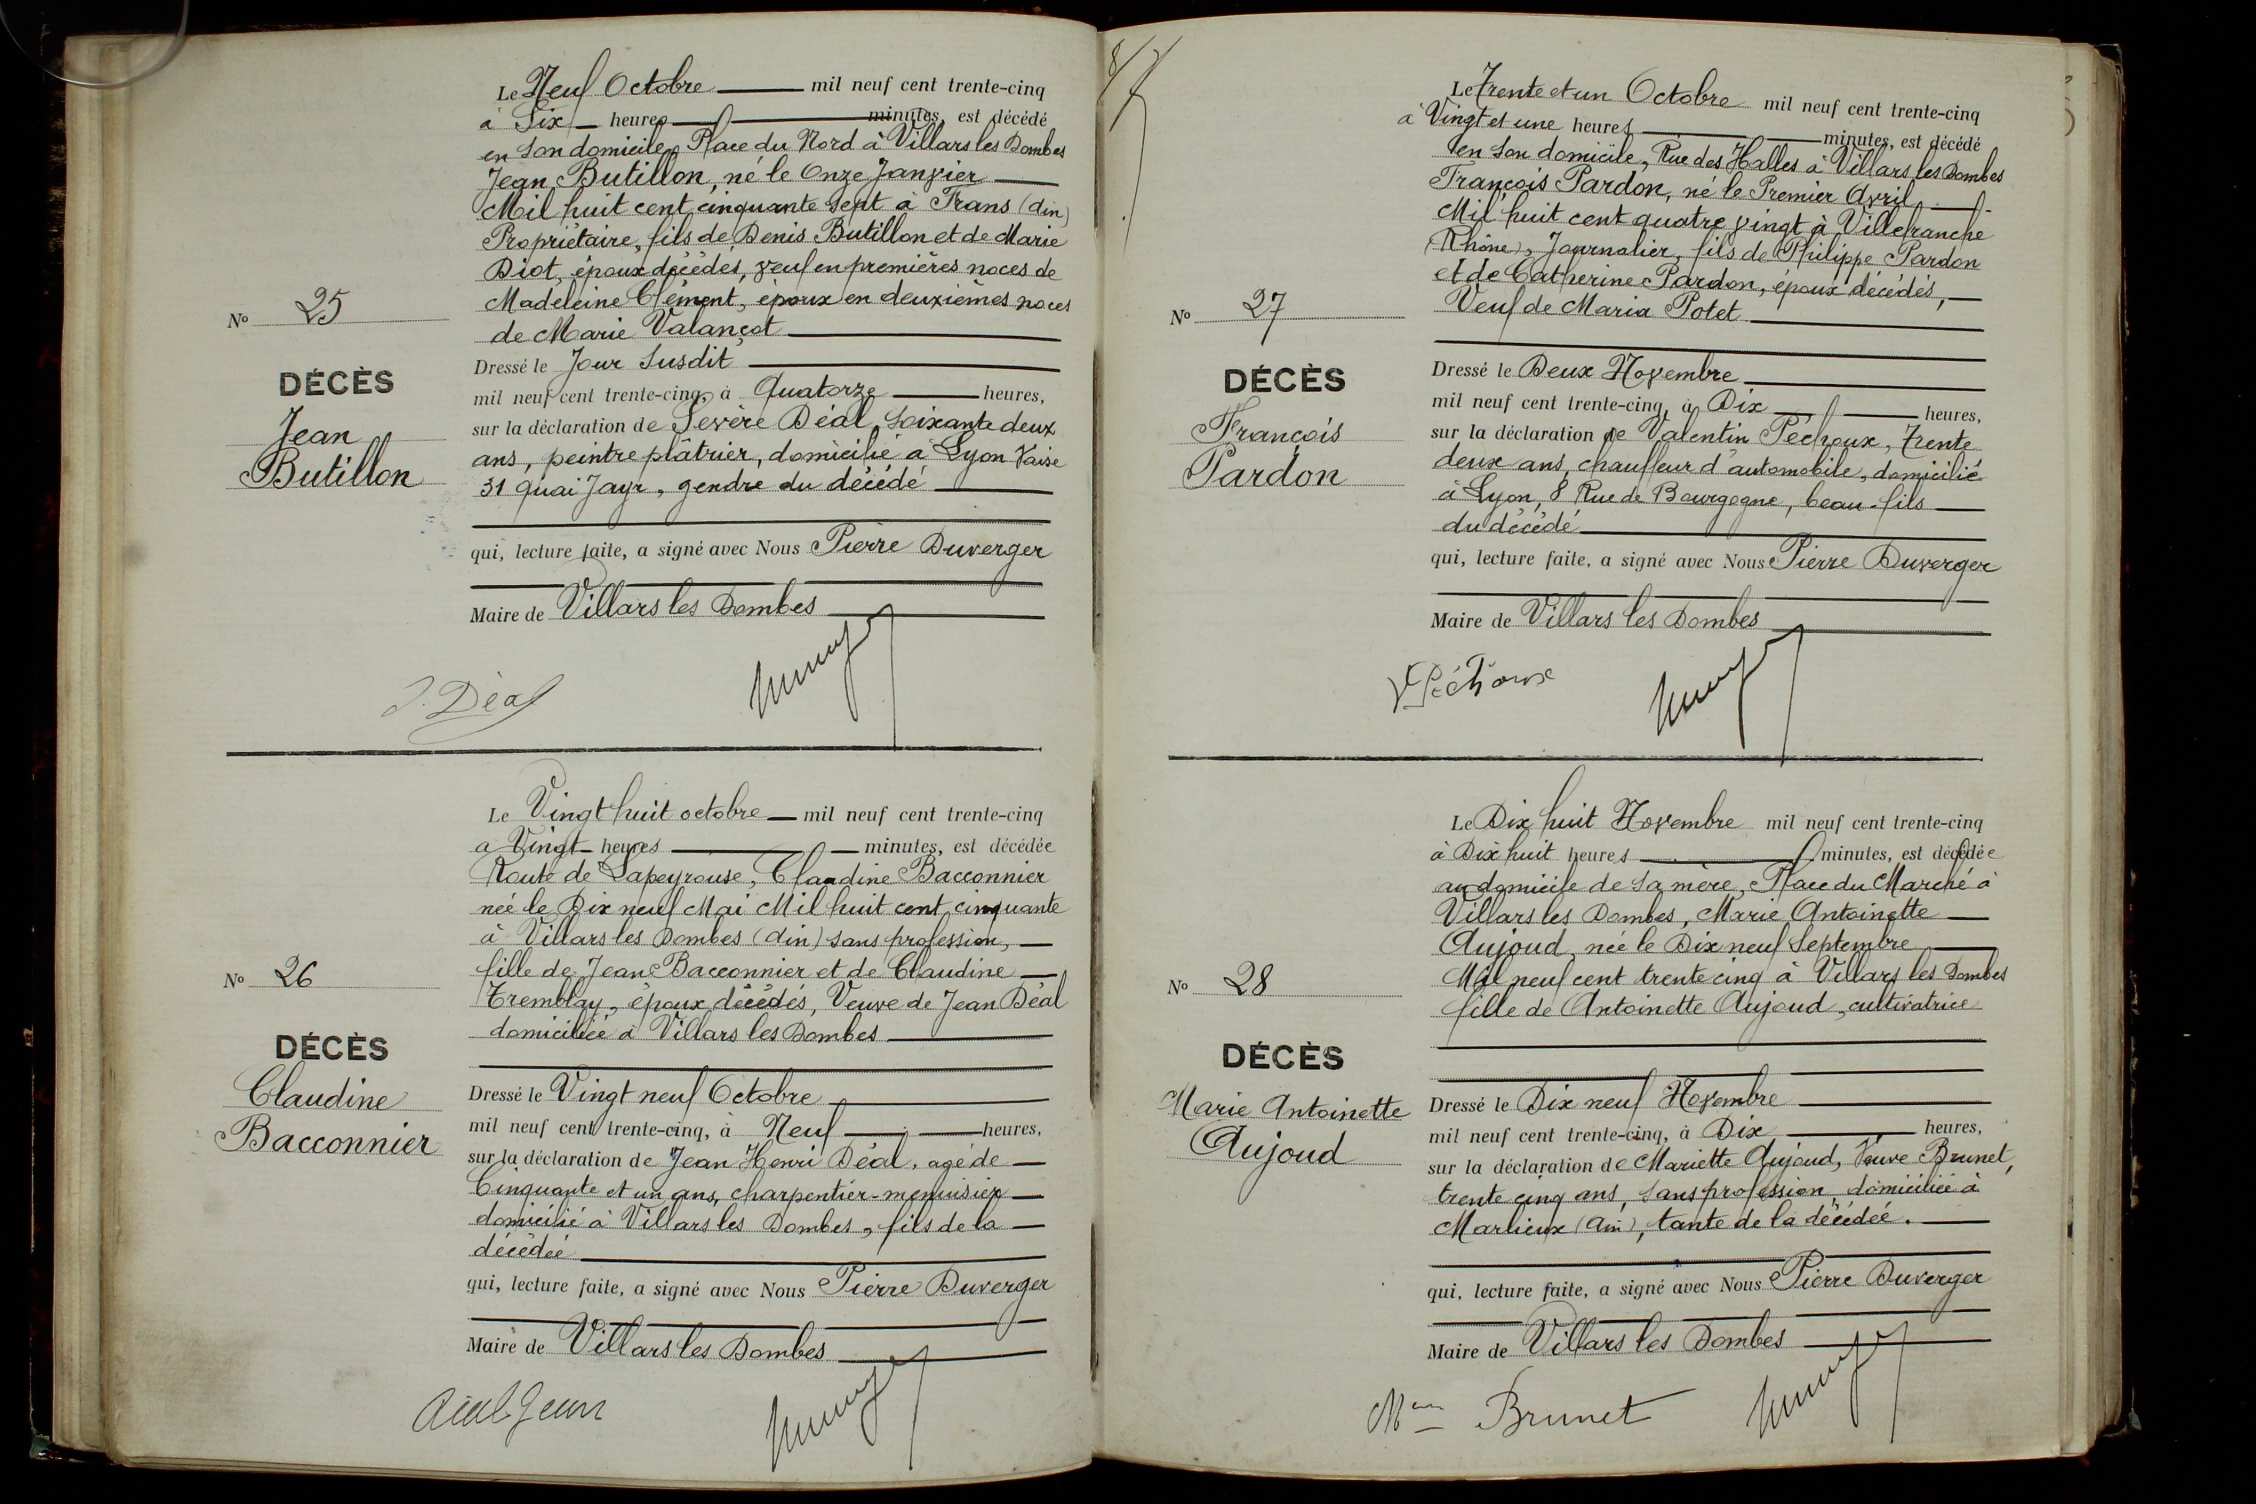 Le Neuf Octobre mil neuf cent trente-cinq
à Six heures minutes, est décédé
en son domicile, Place du Nord à Villars les Dombes
Jean Butillon, né le Onze Janvier
Mil huit cent cinquante sept à Frans (Ain)
Propriétaire, fils de Denis Butillon et de Marie
Diot, époux décédés, veuf en premières noces de
Madeleine Clément, époux en deuxièmes noces
de Marie Valançot
No 25
DÉCÈS
Jean
Butillon
Dressé le Jour susdit
mil neuf cent trente-cinq, à Quatorze heures,
sur la déclaration de Sevère Déal, soixante deux
ans, peintre plâtrier, domicilié à Lyon Vaise
31 quai Jayr, gendre du décédé
qui, lecture faite, a signé avec Nous Pierre Duverger
Maire de Villars les Dombes
J. Déal
Le Vingt huit octobre mil neuf cent trente-cinq
à Vingt heures minutes, est décédée
Route de Lapeyrouse, Claudine Bacconnier
née le Dix neuf Mai Mil huit cent cinquante
à Villars les Dombes (Ain) sans profession,
fille de Jean Bacconnier et de Claudine
Tremblay, époux décédés, Veuve de Jean Déal
domiciliée à Villars les Dombes
No 26
DÉCÈS
Claudine
Bacconnier
Dressé le Vingt neuf Octobre
mil neuf cent trente-cinq, à Neuf heures,
sur la déclaration de Jean Henri Déal, agé de
Cinquante et un ans, charpentier-menuisier
domicilié à Villars les Dombes, fils de la
décédée
qui, lecture faite, a signé avec Nous Pierre Duverger
Maire de Villars les Dombes
Déal Jean
Le Trente et un Octobre mil neuf cent trente-cinq
à Vingt et une heures minutes, est décédé
en son domicile, Rue des Halles à Villars les Dombes
François Pardon, né le Premier Avril
Mil huit cent quatre vingt à Villefranche
(Rhône), Journalier, fils de Philippe Pardon
et de Catherine Pardon, époux décédés,
Veuf de Maria Potet
No 27
DÉCÈS
François
Pardon
Dressé le Deux Novembre
mil neuf cent trente-cinq, à Dix heures,
sur la déclaration de Valentin Péchoux, Trente
deux ans, chauffeur d'automobile, domicilié
à Lyon, 8 Rue de Bourgogne, beau-fils
du décédé
qui, lecture faite, a signé avec Nous Pierre Duverger
Maire de Villars les Dombes
V Péchoux
Le Dix huit Novembre mil neuf cent trente-cinq
à Dix huit heures minutes, est décédée
au domicile de sa mère, Place du Marché à
Villars les Dombes, Marie Antoinette
Aujoud, née le Dix neuf Septembre
Mil neuf cent trente cinq à Villars les Dombes
fille de Antoinette Aujoud, cultivatrice
No 28
DÉCÈS
Marie Antoinette
Aujoud
Dressé le Dix neuf Novembre
mil neuf cent trente-cinq, à Dix heures,
sur la déclaration de Mariette Aujoud, Veuve Brunet,
trente cinq ans, sans profession, domiciliée à
Marlieux (Ain), tante de la décédée.
qui, lecture faite, a signé avec Nous Pierre Duverger
Maire de Villars les Dombes
Mme Brunet